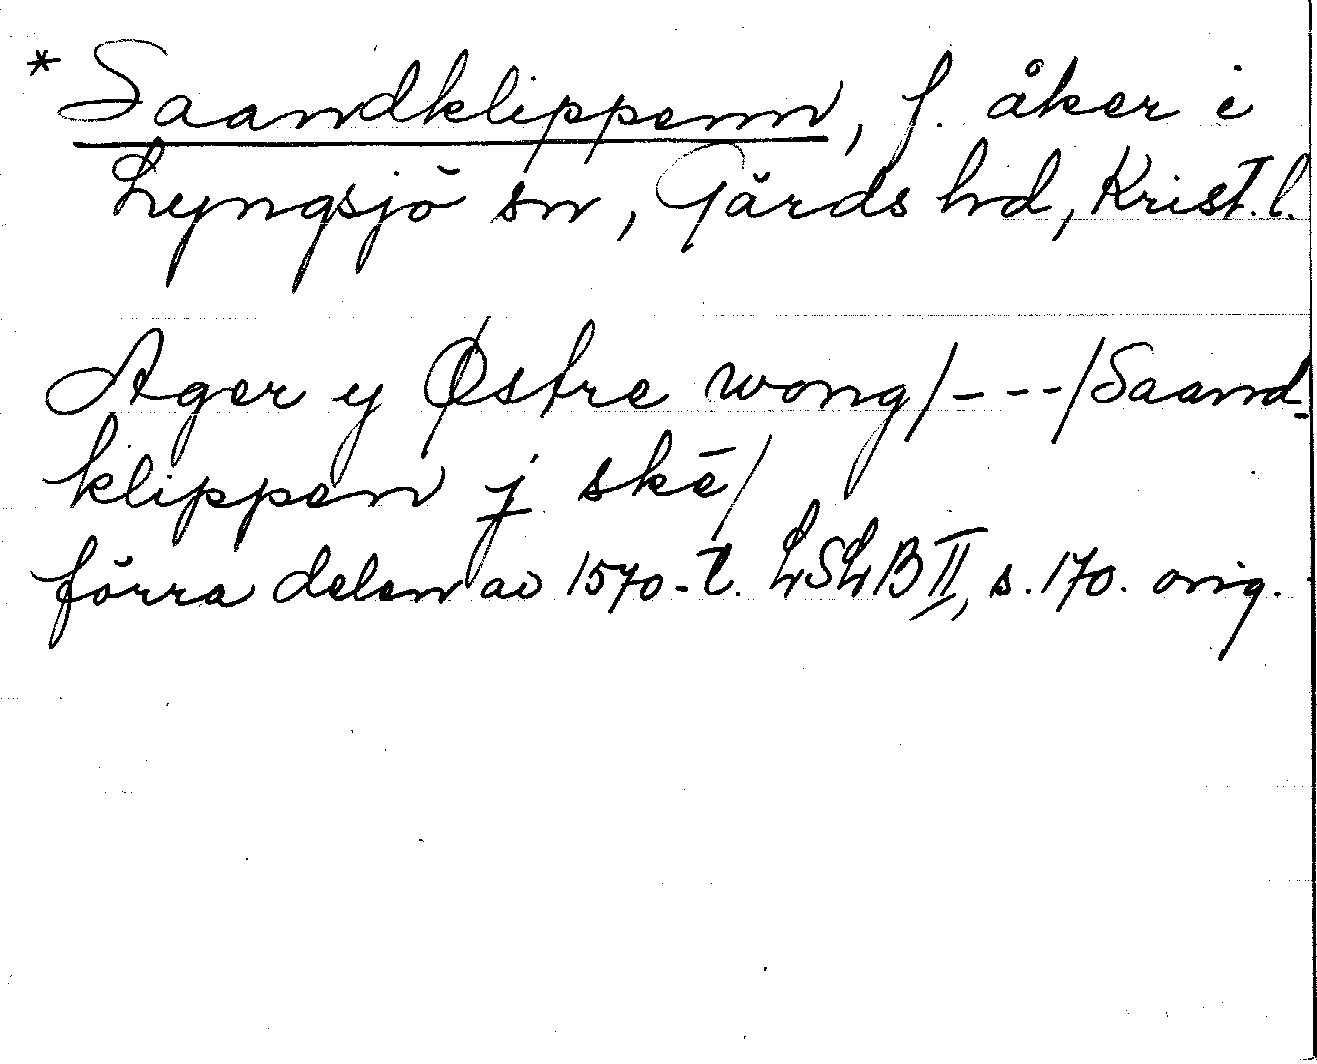 * Saandklippenn, f. åker i
Lyngsjö sn, Gärds hd, Krist. l.
Ager y Østre wong/---/Saand-
klippen j skē/
förra delen av 1570-t. LSLB II, s. 170. orig.